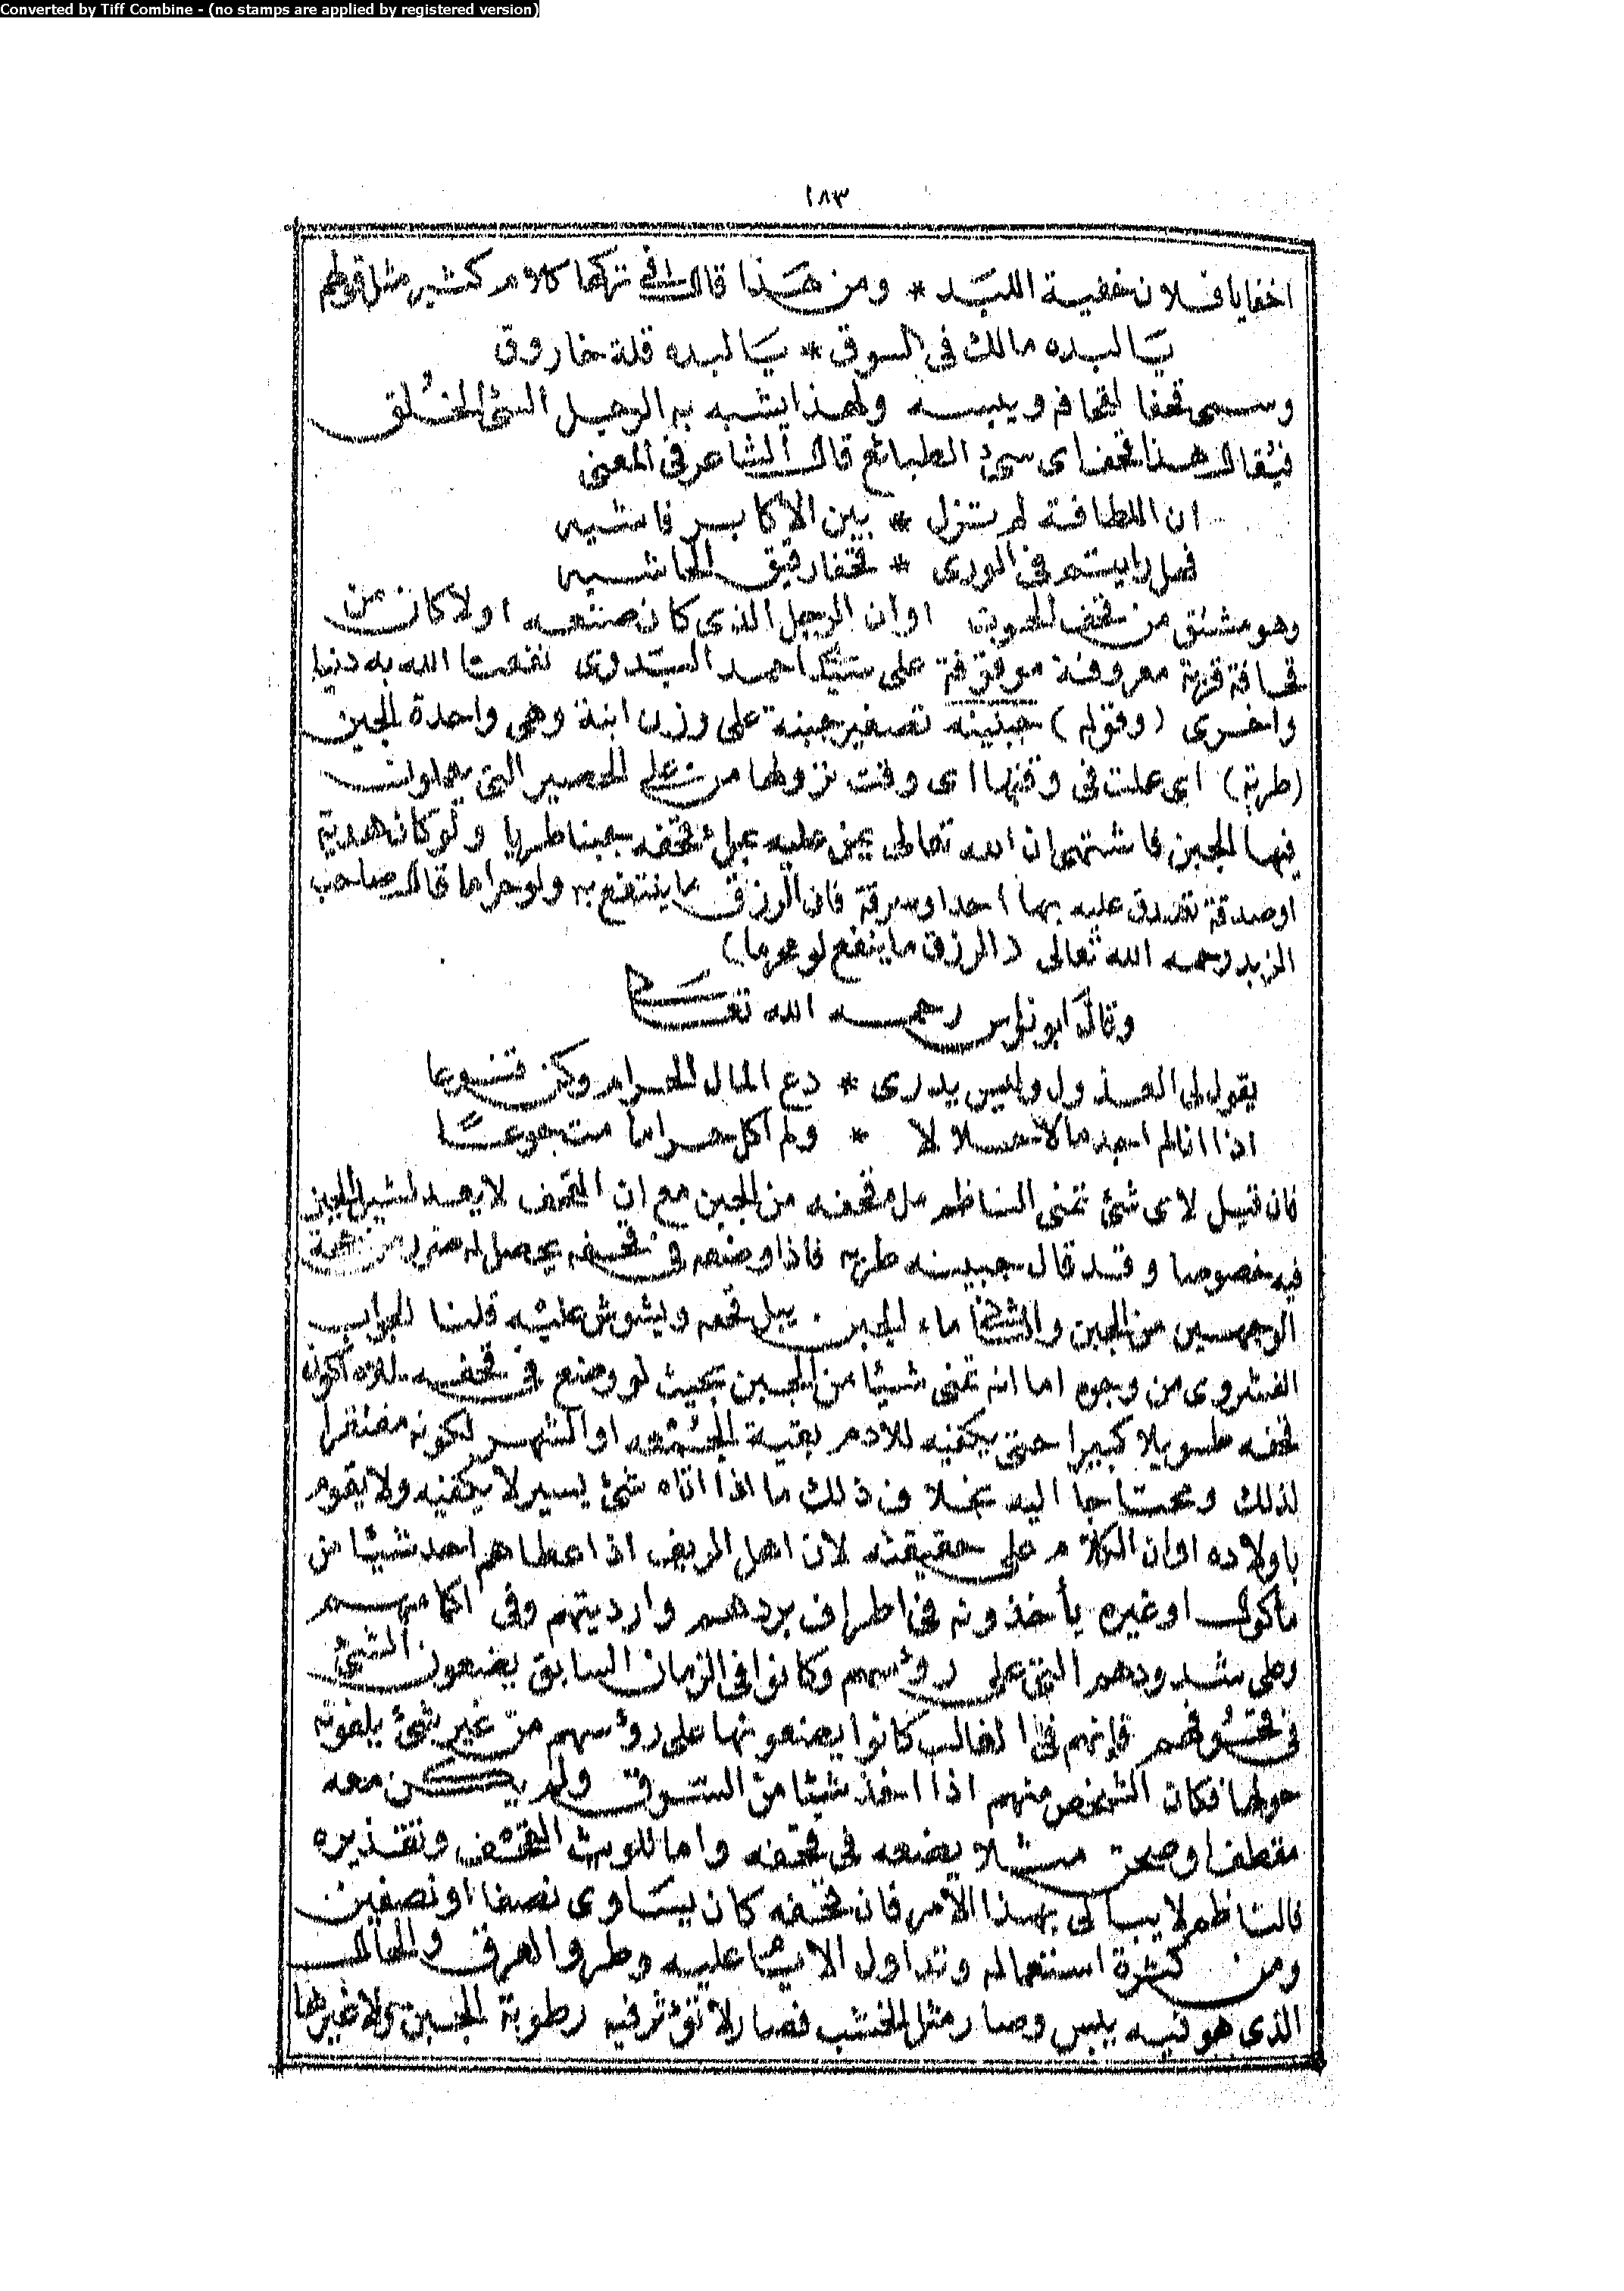 Converted by Tiff Combine - (no stamps are applied by registered version)
١٨٣
اخفايا فلان خفية اللبد * ومن هذا قالت في تهكما كلام كثير مثل قولهم
يا لبده مالك في السوق * يا لبده قلة خاروق
وسمى قحفا لقحافه ويبسه ولهذا يشبه به الرجل السئ الخُلق
فيُقال هذا قحف اى سئ الطبائع قال الشاعر فى المعنى
ان اللطافة لم تزل * بين الاكابر فاشيه
فهل رايتم فى الورى * قحفا رقيق الحاشيه
وهو مشتق من قحف اوان الرجل الذى كان صنعه اولا كان من
قحافة قرية معروفة موقوفة على سيدى احمد البدوى نفعنا الله به دنيا
واخرى (وقوله) جبنينه تصغير جبنة على وزن ابنة وهى واحدة الجبن
(طريه) اى عملت فى وقتها اى وقت نزولها من على الحصير التى يعملون
فيها الجبن فاشتهى ان الله تعالى يمن عليه بملئ قحفه جبنا طريا ولو كان هدية
اوصدقة تصدق عليه بها احد اوسرقة فان الرزق ما ينتفع به ولو حراما قال صاحب
الزبد رحمه الله تعالى (الرزق ما ينفع لو محرما)
وقال ابو نواس رحمه الله تعالى
يقول لى العذول وليس يدرى * دع المال الحرام وكن قنوعا
اذا انا لم اجد مالا حلالا * ولم آكل حراما مت جوعا
فان قيل لاى شئ تمنى الناظم ملء قحفه من الجبن مع ان القحف لا يعد لشيل الجبن
فيه خصوصا وقد قال جبينه طريه فاذا وضعه فى قحفه يحصل له ضرر من جهة
الوجهين من الجبن ماء الجبن يبل قحفه ويشوش عليه قلنا الجواب
الفشروى من وجوه اما انه تمنى شيئا من الجبن بحيث لو وضع فى قحفه لملاه لكون
قحفه طويلا كبيرا حتى يكفيه للادم بقية الجمعه او الشهر لكونه مفتقرا
لذلك ومحتاجا اليه بخلاف ذلك ما اذا اتاه شئ يسير لا يكفيه ولا يقوم
باولاده اوان الكلام على حقيقته لان اهل الريف اذا اعطاهم احد شيئا من
مأكول اوغيره يأخذونه فى اطراف بردهم وارديتهم وفى اكمامهم
وعلى شدودهم التى على رؤسهم وكانوا فى الزمان السابق يضعون الشئ
فى قحوفهم فانهم فى الغالب كانوا يضعونها على رؤسهم من غير شئ يلفونه
حولها فكان الشخص منهم اذا اخذ شيئا من السوق ولم يكن معه
مقطف اوصحن مثلا يضعه فى قحفه واما تلويث القحف وتقذيره
فالناظم لا يبالى بهذا الامر فان قحفه كان يساوى نصفا او نصفين
ومن كثرة استعماله وتداول الايام عليه وطرو العرق والحال
الذى هو فيه يبس وصار مثل الخشب فصار لا تؤثر فيه رطوبة الجبن ولا غيرها